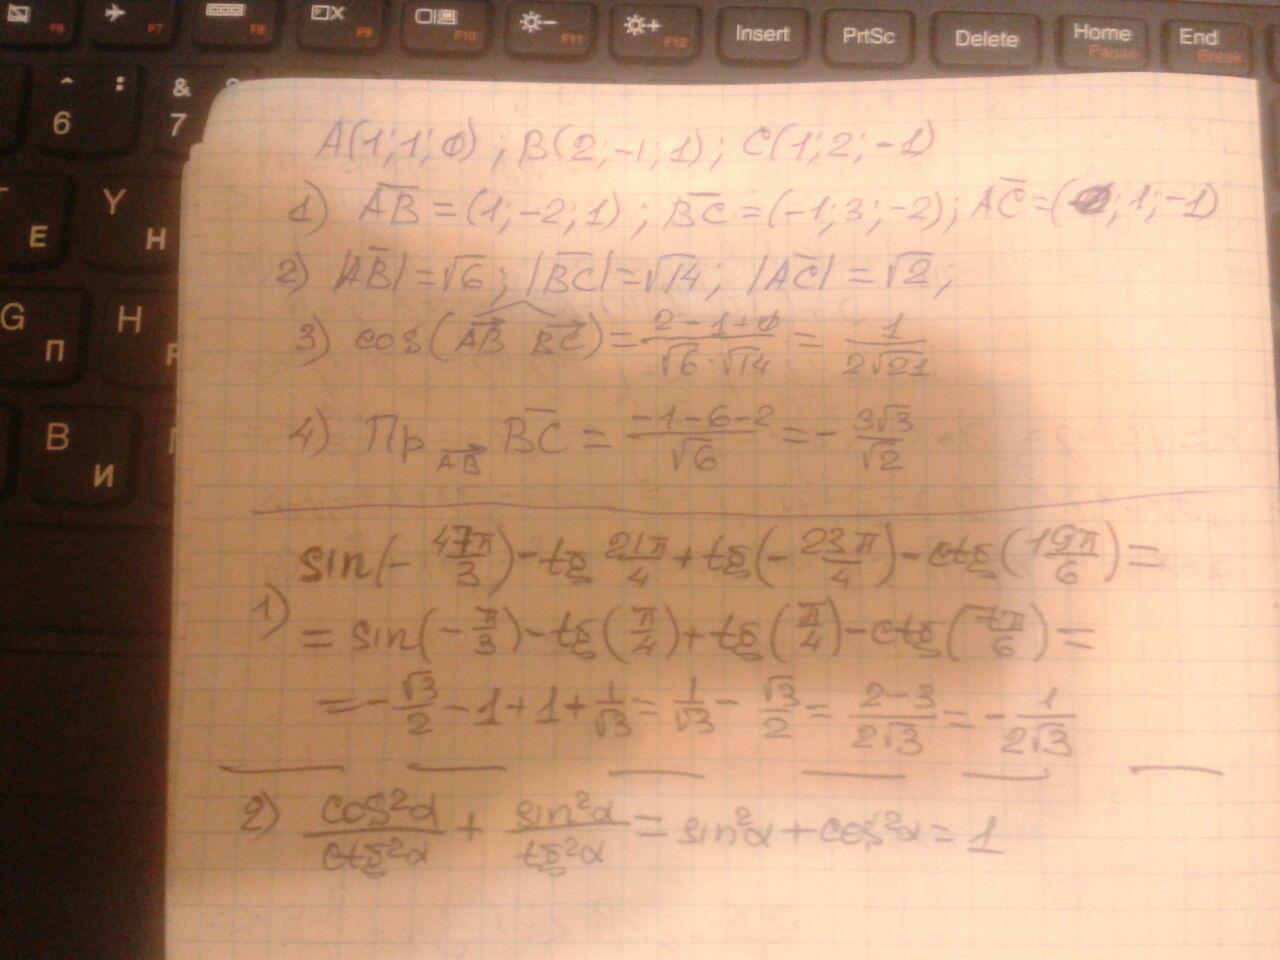 F6 F7 F8 F9 F10 F11 F12 Insert PrtSc Delete Home Pause End Break
6 & 7
Y Е Н
G П H
В И
A(1;1;0); B(2;-1;1); C(1;2;-1)
1) AB = (1;-2;1); BC = (-1;3;-2); AC = (0;1;-1)
2) |AB| = √6; |BC| = √14; |AC| = √2;
3) cos(AB BC) = (2-1+0)/(√6·√14) = 1/(2√21)
4) Пр AB BC = (-1-6-2)/√6 = -3√3/√2
sin(-47π/3) - tg 21π/4 + tg(-23π/4) - ctg(19π/6) =
1) = sin(-π/3) - tg(π/4) + tg(π/4) - ctg(7π/6) =
= -√3/2 - 1 + 1 + 1/√3 = 1/√3 - √3/2 = (2-3)/(2√3) = -1/(2√3)
2) cos²α/ctg²α + sin²α/tg²α = sin²α + cos²α = 1